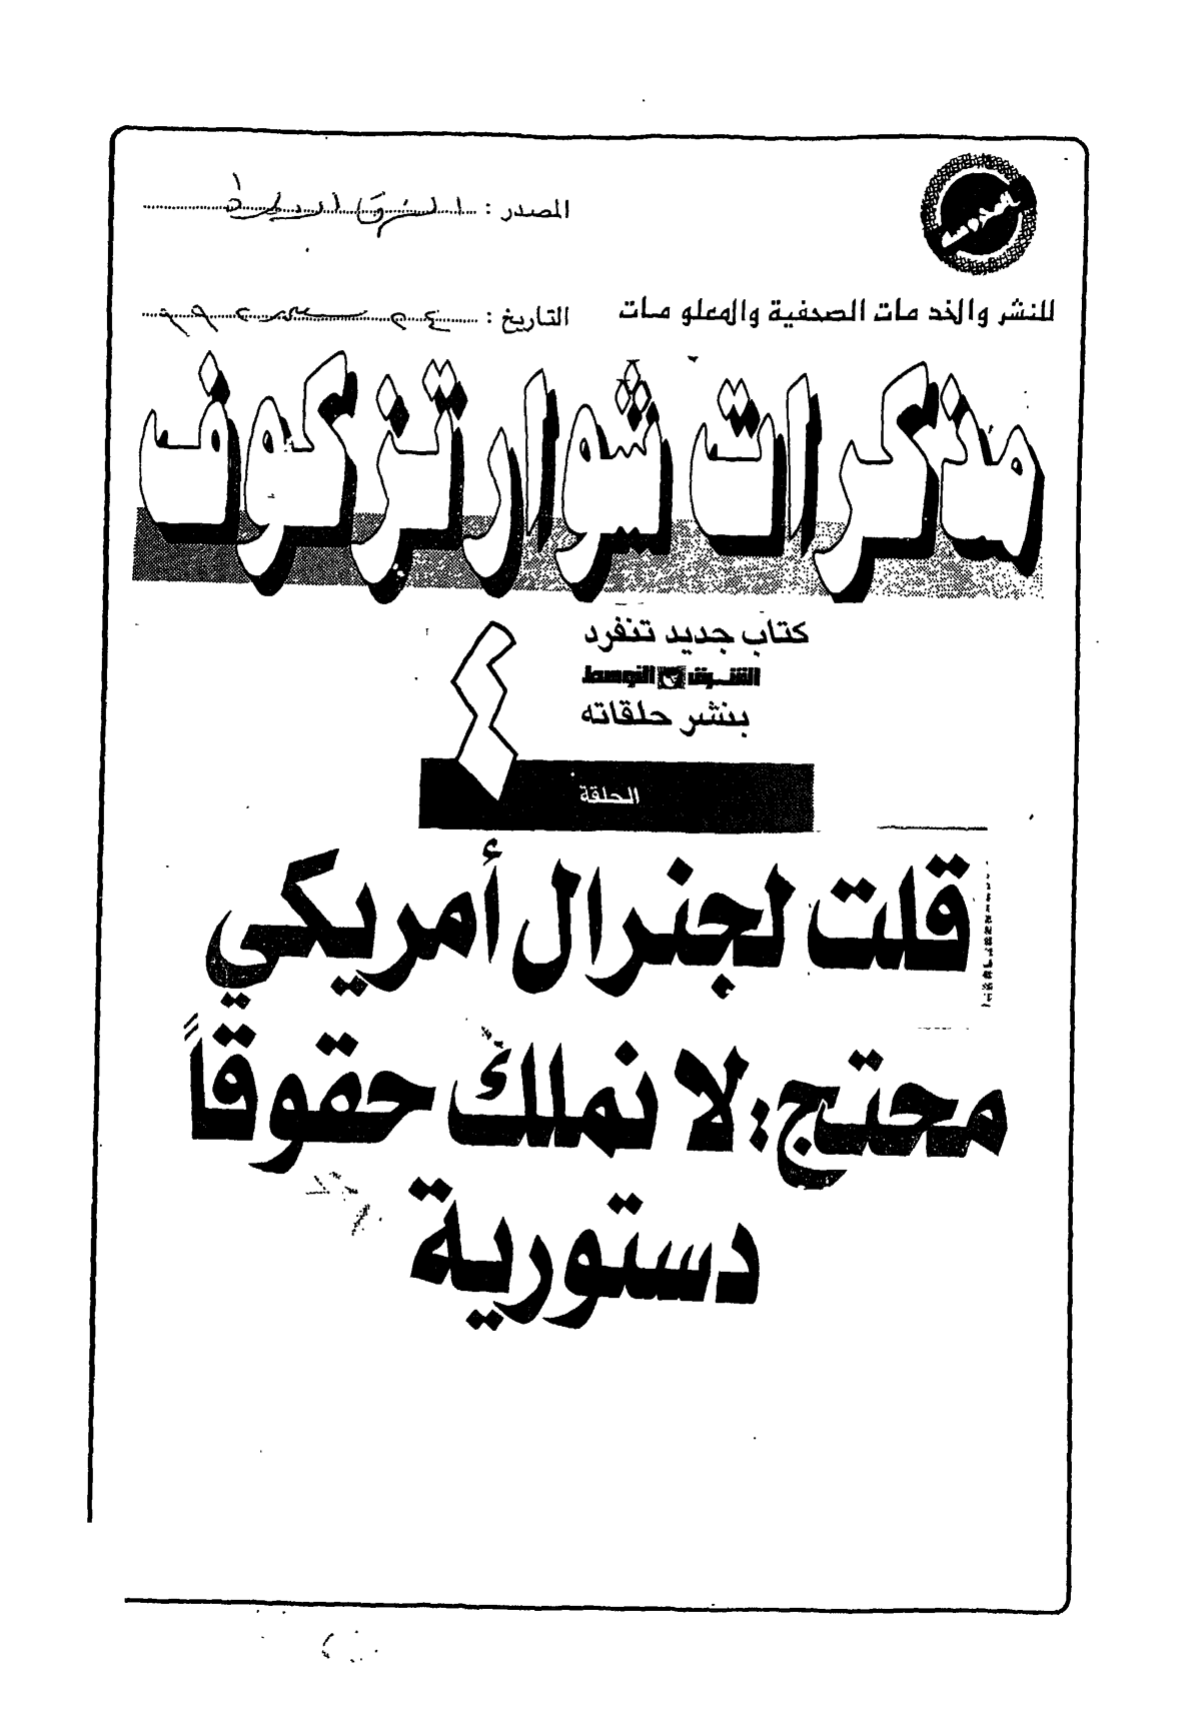 المصدر : الشرق الأوسط
للنشر والخدمات الصحفية والمعلومات
التاريخ :
مذكرات شوارتزكوف
كتاب جديد تنفرد
الشرق الأوسط
بنشر حلقاته
الحلقة ٤
قلت لجنرال أمريكي
محتج: لا نملك حقوقاً
دستورية